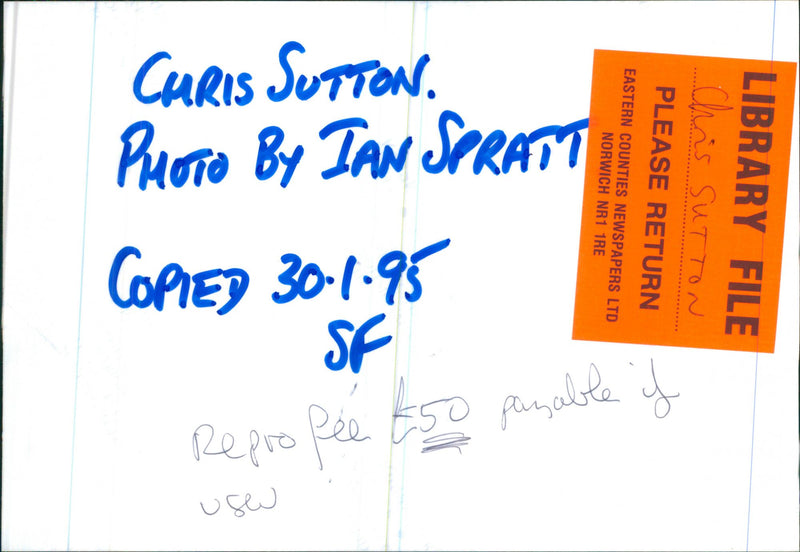 CHRIS SUTTON.
PHOTO BY IAN SPRATT
COPIED 30·1·95
SF
Repro fee £50 payable if
used
LIBRARY FILE
Chris SUTTON
PLEASE RETURN
EASTERN COUNTIES NEWSPAPERS LTD
NORWICH NR1 1RE